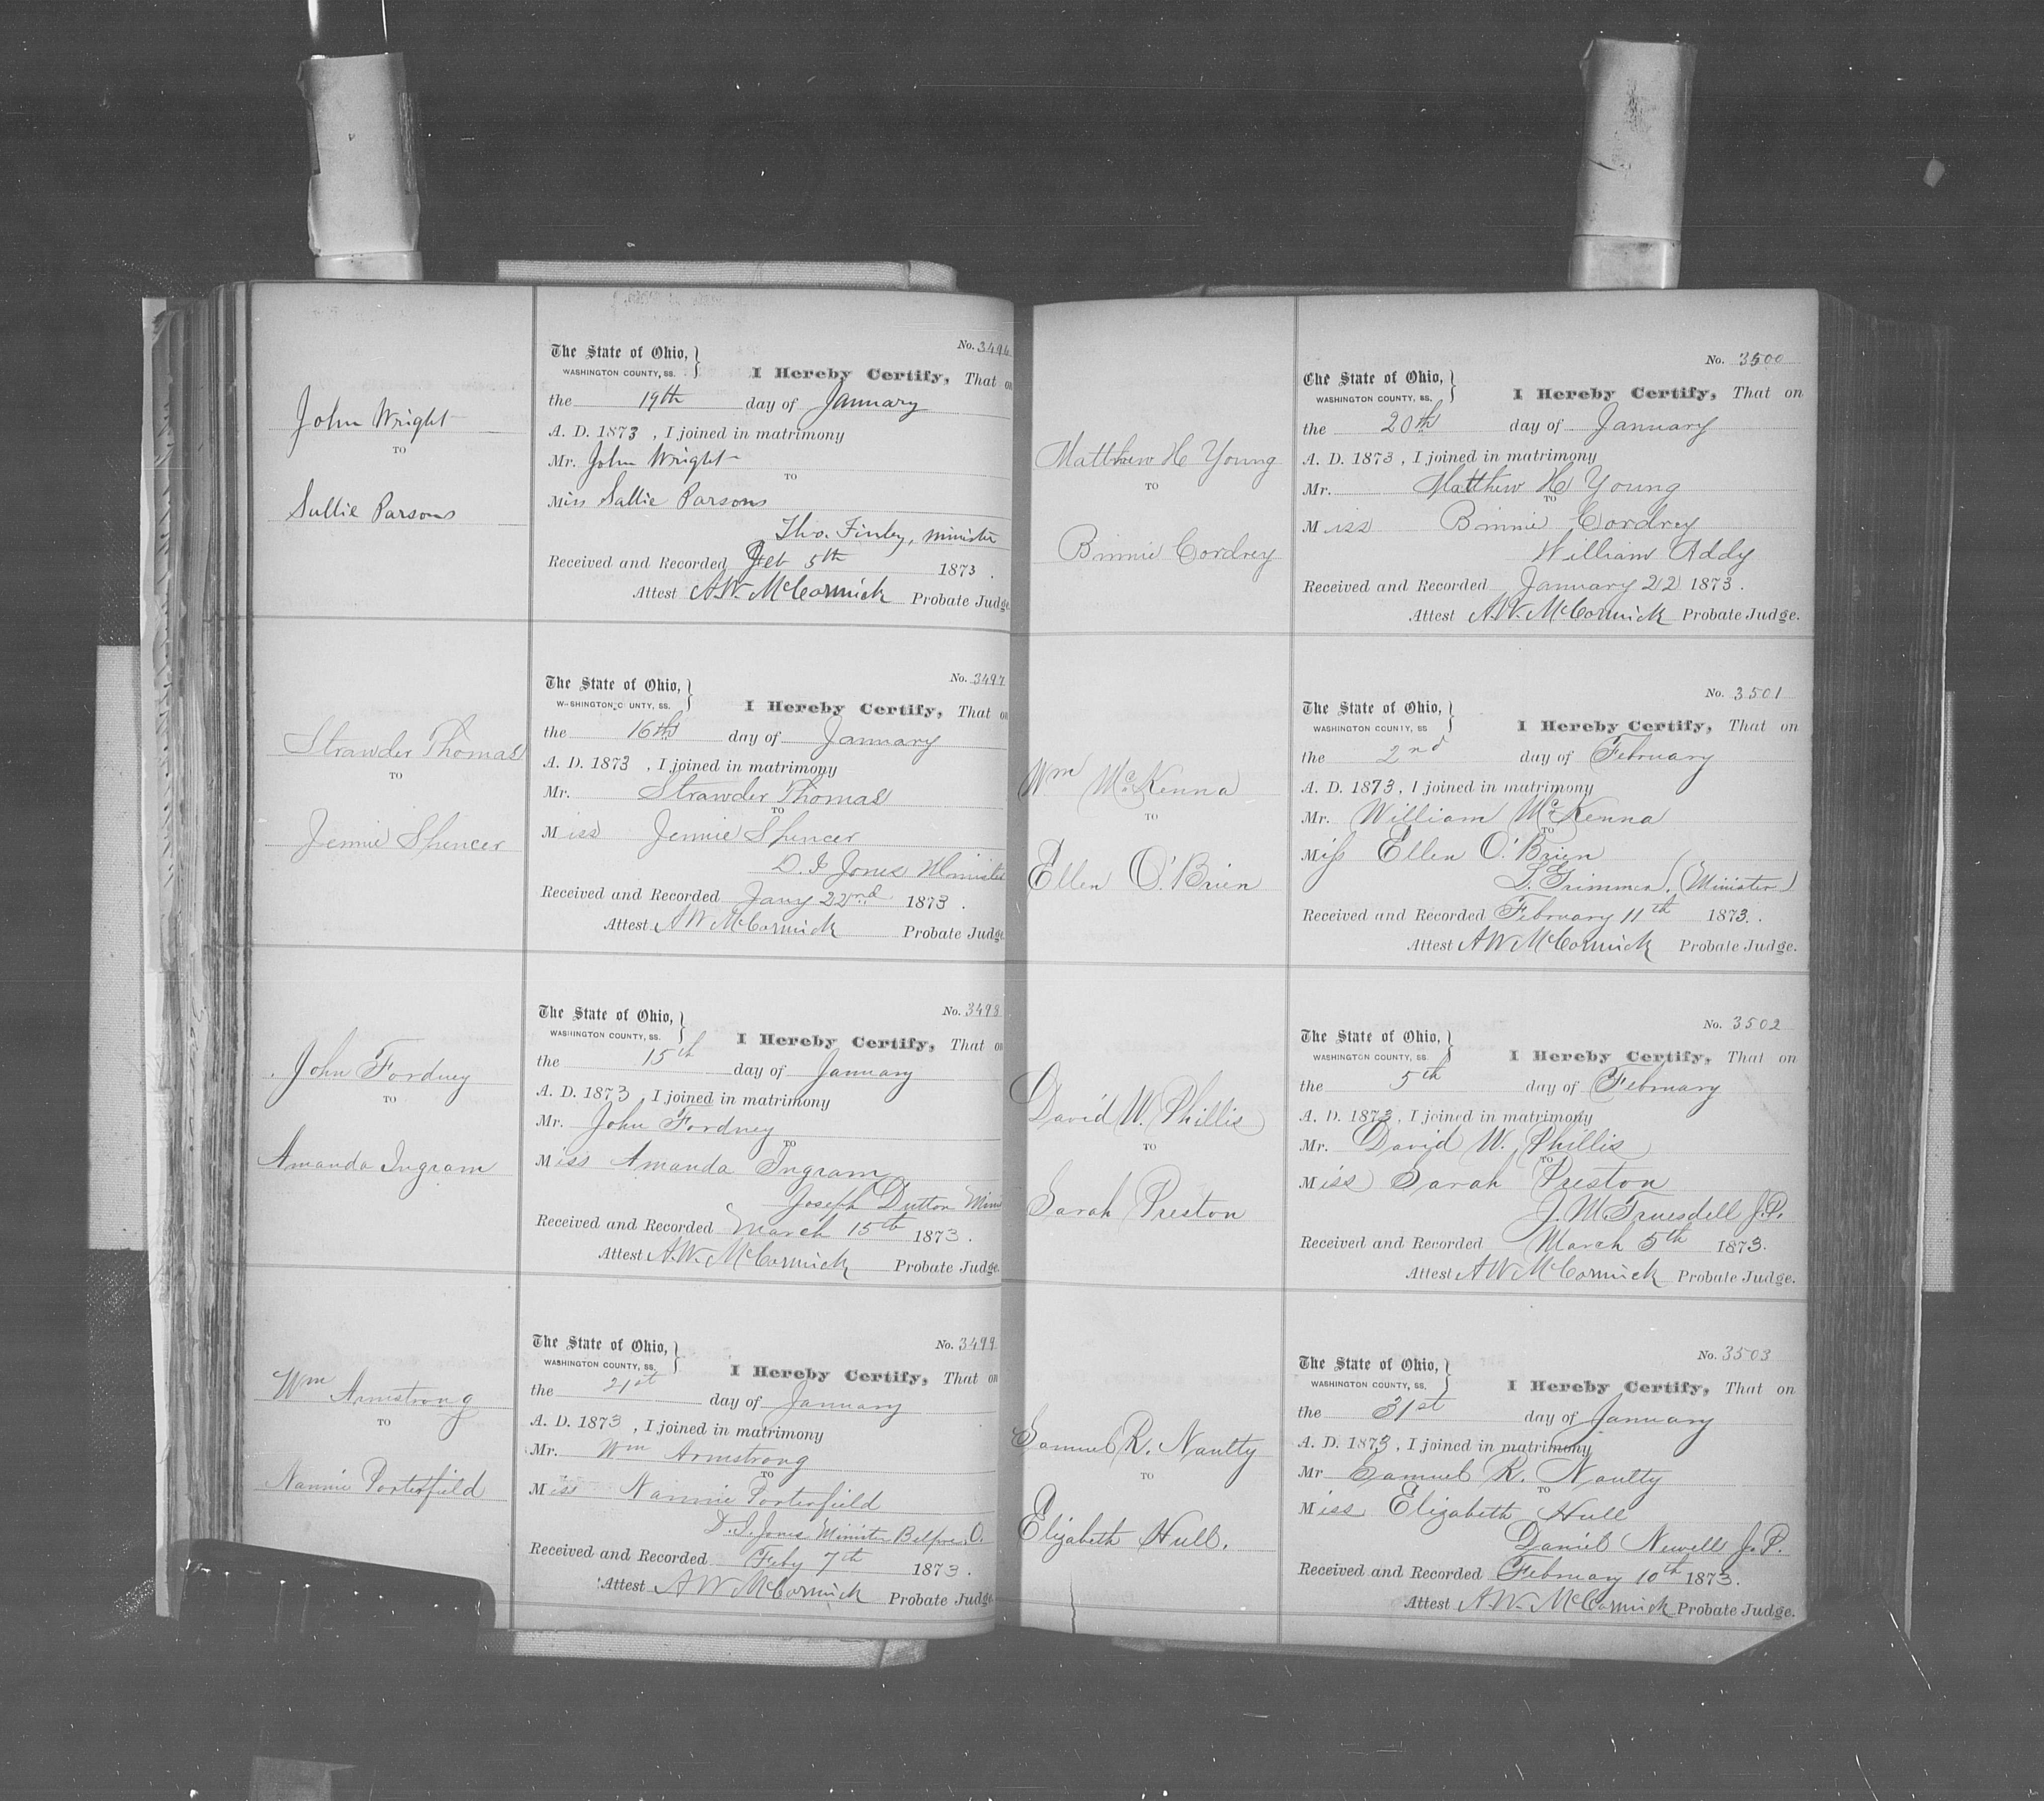 John Wright
TO
Sallie Parsons
No. 3496
The State of Ohio,
WASHINGTON COUNTY, SS.
I Hereby Certify, That on
the 19th day of January
A. D. 1873, I joined in matrimony
Mr. John Wright
TO
Miss Sallie Parsons
Tho. Finley, minister
Received and Recorded Feb 5th 1873.
Attest A.W. McCormick Probate Judge
Strawder Thomas
TO
Jennie Spencer
No. 3497
The State of Ohio,
WASHINGTON COUNTY, SS.
I Hereby Certify, That on
the 16th day of January
A. D. 1873, I joined in matrimony
Mr. Strawder Thomas
TO
Miss Jennie Spencer
D. I. Jones Minister
Received and Recorded Jany 22nd 1873.
Attest A W McCormick Probate Judge
John Fordney
TO
Amanda Ingram
No. 3498
The State of Ohio,
WASHINGTON COUNTY, SS.
I Hereby Certify, That on
the 15th day of January
A. D. 1873, I joined in matrimony
Mr. John Fordney
TO
Miss Amanda Ingram
Joseph Dutton Mins
Received and Recorded March 15th 1873.
Attest A.W. McCormick Probate Judge.
Wm Armstrong
TO
Nannie Porterfield
No. 3499
The State of Ohio,
WASHINGTON COUNTY, SS.
I Hereby Certify, That on
the 21st day of January
A. D. 1873, I joined in matrimony
Mr. Wm Armstrong
TO
Miss Nannie Porterfield
D. I. Jones Minister Belpre, O.
Received and Recorded Feby 7th 1873.
Attest A W McCormick Probate Judge.
Matthew H Young
TO
Binnie Cordrey
No. 3500
The State of Ohio,
WASHINGTON COUNTY, SS.
I Hereby Certify, That on
the 20th day of January
A. D. 1873, I joined in matrimony
Mr. Matthew H Young
TO
Miss Binnie Cordrey
William Addy
Received and Recorded January 22 1873.
Attest A.W. McCormick Probate Judge.
Wm McKenna
TO
Ellen O'Brien
No. 3501
The State of Ohio,
WASHINGTON COUNTY, SS.
I Hereby Certify, That on
the 2nd day of February
A. D. 1873, I joined in matrimony
Mr. William McKenna
TO
Miss Ellen O'Brien
L. Grimmer. (Minister)
Received and Recorded February 11th 1873.
Attest A W McCormick Probate Judge.
David W. Phillis
TO
Sarah Preston
No. 3502
The State of Ohio,
WASHINGTON COUNTY, SS.
I Hereby Certify, That on
the 5th day of February
A. D. 1873, I joined in matrimony
Mr. David W. Phillis
TO
Miss Sarah Preston
J. M. Truesdell J.P.
Received and Recorded March 5th 1873.
Attest A W McCormick Probate Judge.
Samuel R. Naulty
TO
Elizabeth Hull.
No. 3503
The State of Ohio,
WASHINGTON COUNTY, SS.
I Hereby Certify, That on
the 31st day of January
A. D. 1873, I joined in matrimony
Mr Samuel R. Naulty
TO
Miss Elizabeth Hull
Daniel Newell J.P.
Received and Recorded February 10th 1873.
Attest A.W. McCormick Probate Judge.